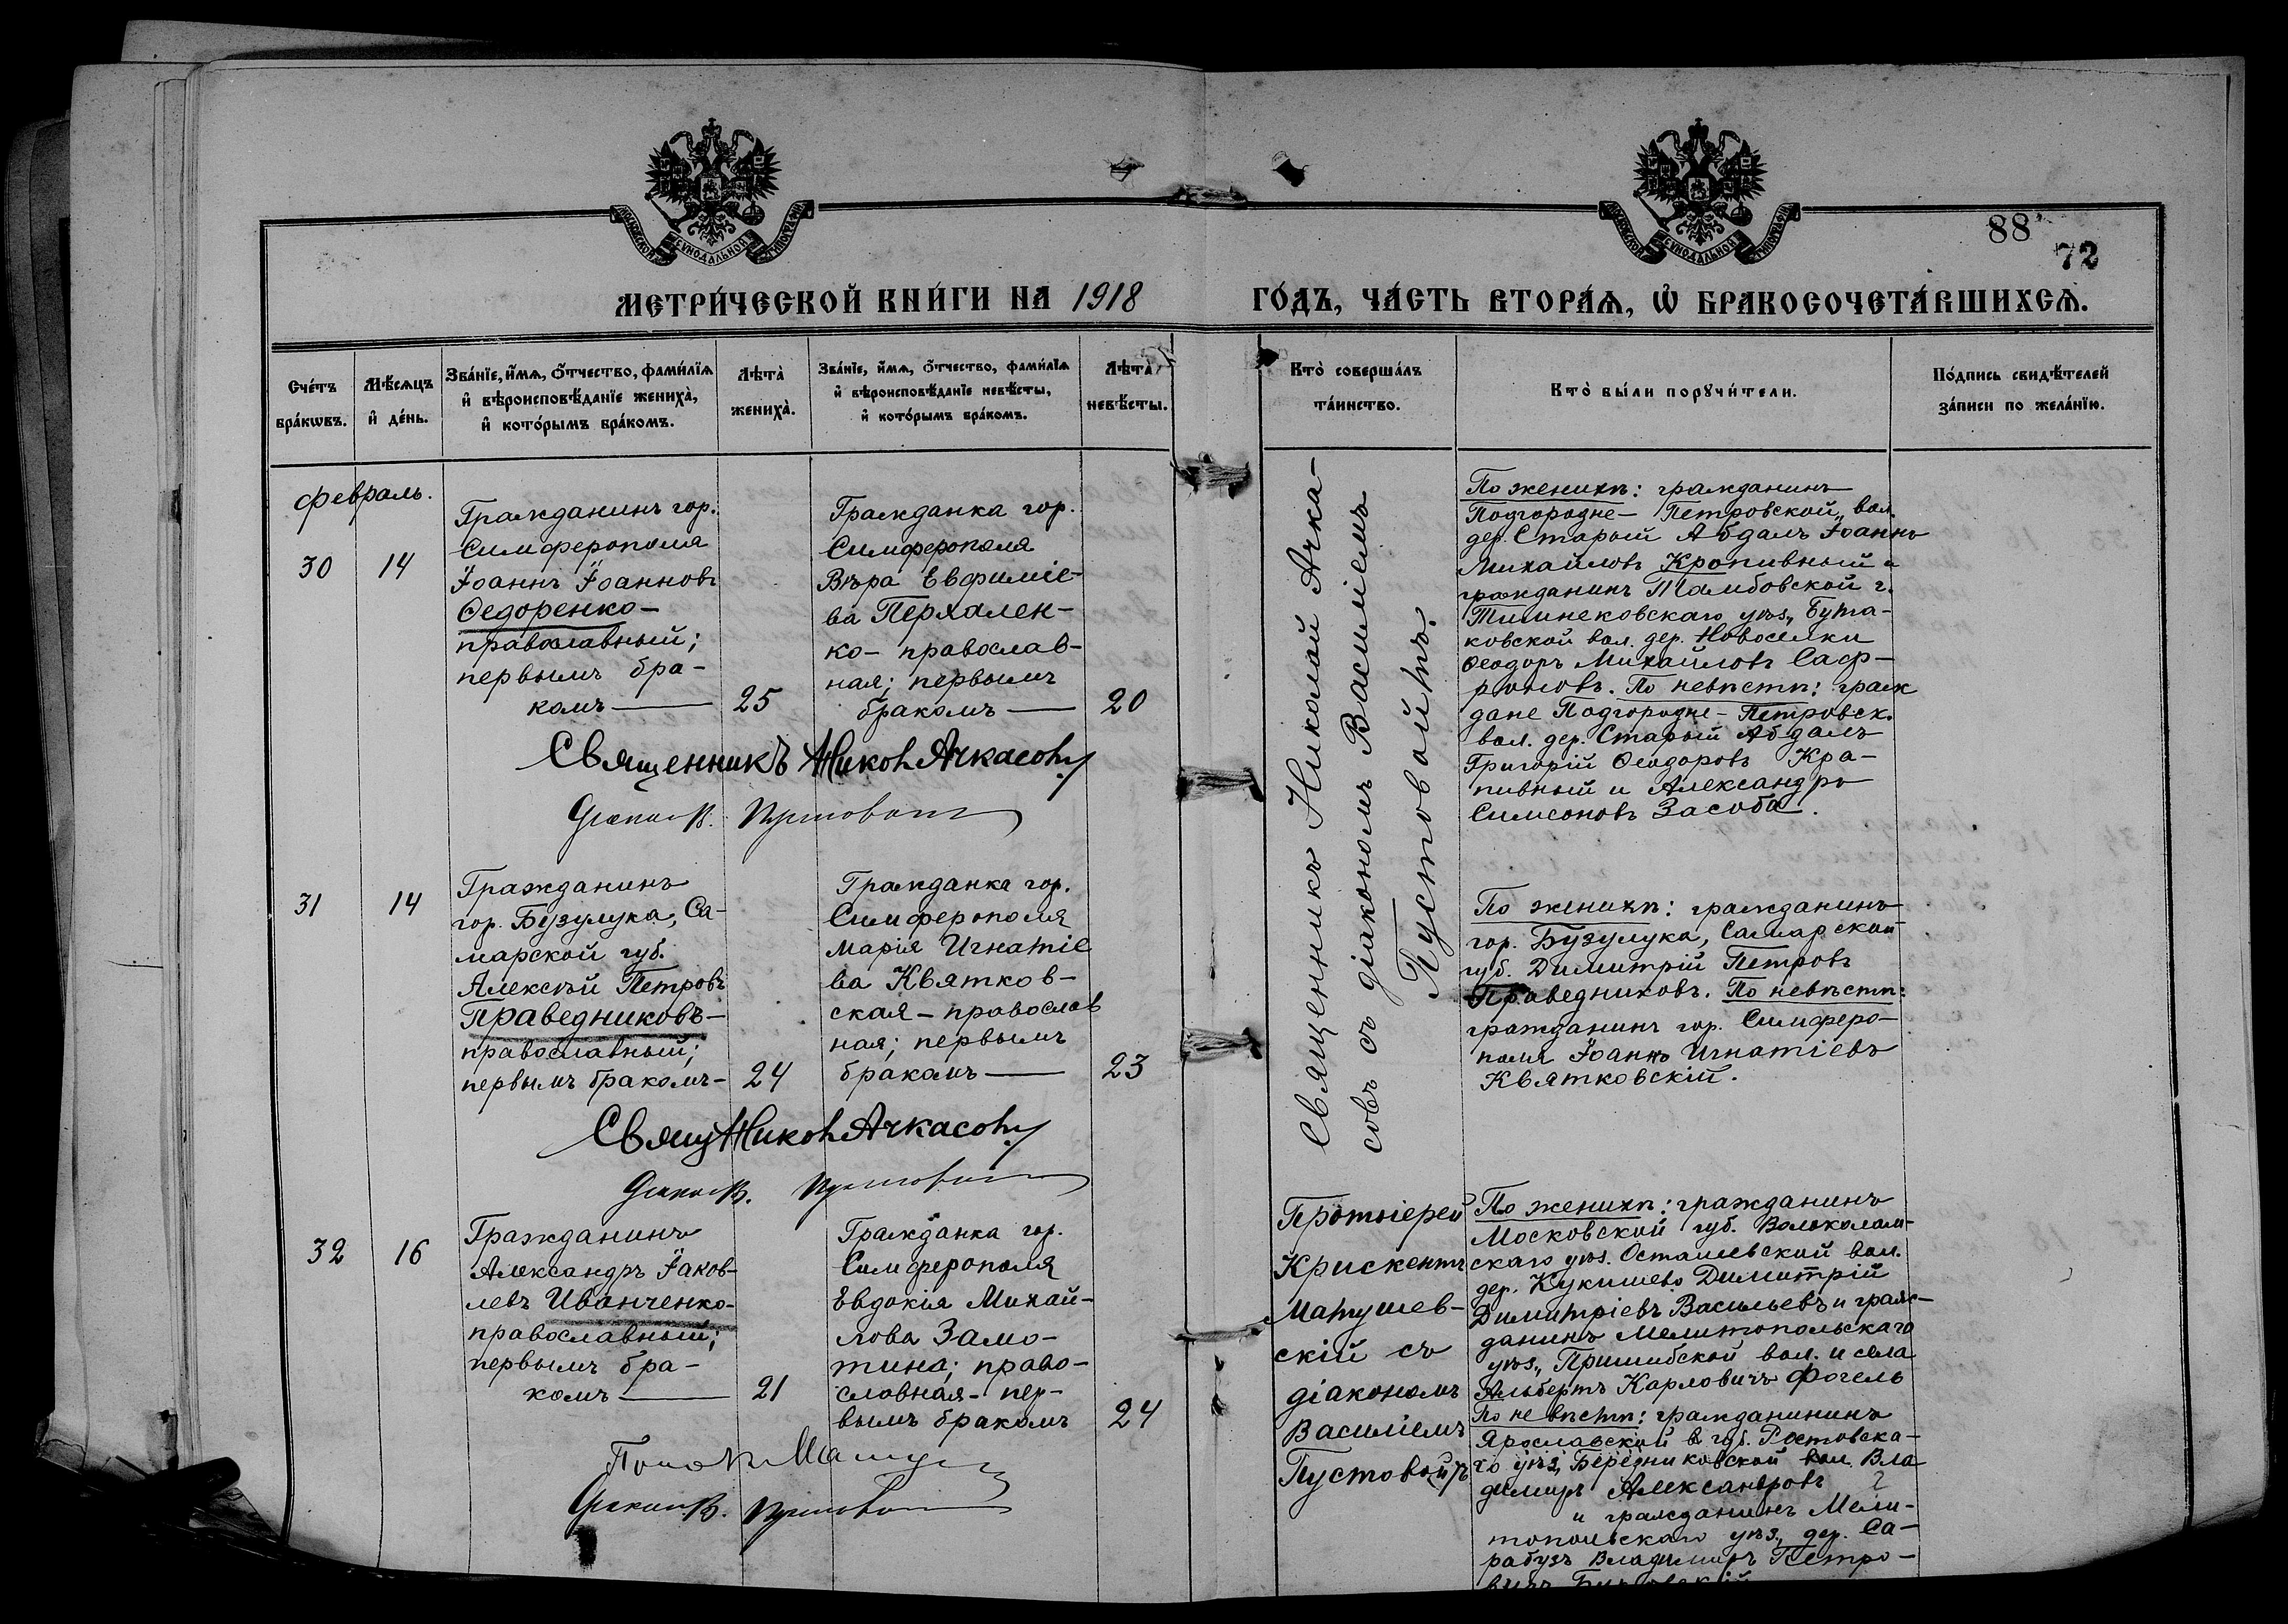 88
72
МЕТРИ́ЧЕСКОЙ КНИ́ГИ НА 1918 ГО́ДЪ, ЧА́СТЬ ВТОРА́Ѧ, Ѡ҆ БРАКОСОЧЕТА́ВШИХСѦ.
Сче́тъ бра́кѡвъ.
Мѣ́сѧцъ и҆ де́нь.
Зва́нїе, и҆́мѧ, ѻ҆́тчество, фами́лїѧ и҆ вѣроисповѣ́данїе жениха̀, и҆ кото́рымъ бра́комъ.
Лѣта̀ жениха̀.
Зва́нїе, и҆́мѧ, ѻ҆́тчество, фами́лїѧ и҆ вѣроисповѣ́данїе невѣ́сты, и҆ кото́рымъ бра́комъ.
Лѣта̀ невѣ́сты.
Кто̀ соверша́лъ та́инство.
Кто̀ бы́ли порꙋчи́тели.
По́дпись свидѣ́телей за́писи по жела́нїю.
Февраль.
30
14
Гражданинъ гор.
Симферополя
Іоаннъ Іоанновъ
Ѳедоренко—
православный;
первымъ бра-
комъ —
25
Гражданка гор.
Симферополя
Вѣра Евфиміе-
ва Перхален-
ко — православ-
ная; первымъ
бракомъ —
20
Священникъ Николай Ачка-
совъ съ діакономъ Василіемъ
Пустовойтъ.
По женихѣ: гражданинъ
Подгородне-Петровской вол.
дер. Старый Абдалъ Іоаннъ
Михайловъ Кропивный и
гражданинъ Тамбовской г.
Темниковскаго уѣз., Бута-
ковской вол. дер. Новоселки
Ѳеодоръ Михайловъ Саф-
роновъ. По невѣстѣ: граж
дане Подгородне-Петровск.
вол. дер. Старый Абдалъ
Григорій Ѳеодоровъ Кра-
пивный и Александръ
Симеоновъ Засоба.
Священникъ Никол Ачкасовъ
Діакон В. Пустовойт
31
14
Гражданинъ
гор. Бузулука, Са-
марской губ.
Алексѣй Петровъ
Праведниковъ—
православный;
первымъ бракомъ—
24
Гражданка гор.
Симферополя
Марія Игнатіе
ва Квятков-
ская — православ
ная; первымъ
бракомъ —
23
По женихѣ: гражданинъ
гор. Бузулука, Самарской
губ. Димитрій Петровъ
Праведниковъ. По невѣстѣ:
гражданинъ гор. Симферо-
поля Іоаннъ Игнатіевъ
Квятковскій.
Свящ Никол Ачкасовъ
Діакон В. Пустовойт
32
16
Гражданинъ
Александръ Іаков-
левъ Иванченко—
православный;
первымъ бра-
комъ —
21
Гражданка гор.
Симферополя
Евдокія Михай-
лова Замо-
тина; право-
славная — пер-
вымъ бракомъ
24
Протоіерей
Крискентъ
Матушев-
скій съ
діакономъ
Василіемъ
Пустовойтъ
По женихѣ: гражданинъ
Московской губ. Волоколам-
скаго уѣз. Осташевской вол.
дер. Кукишево Димитрій
Димитріевъ Васильевъ и граж-
данинъ Мелитопольскаго
уѣз., Пришибской вол. и села
Альбертъ Карловичъ Фогель
По невѣстѣ: гражданининъ
Ярославской губ. Ростовска-
го уѣз., Березниковской вол. Вла
димиръ Александровъ
и гражданинъ Мели-
топольскаго уѣз., дер. Са-
рабузъ Владимиръ Петро-
вичъ
Діакон В. Пустовойт